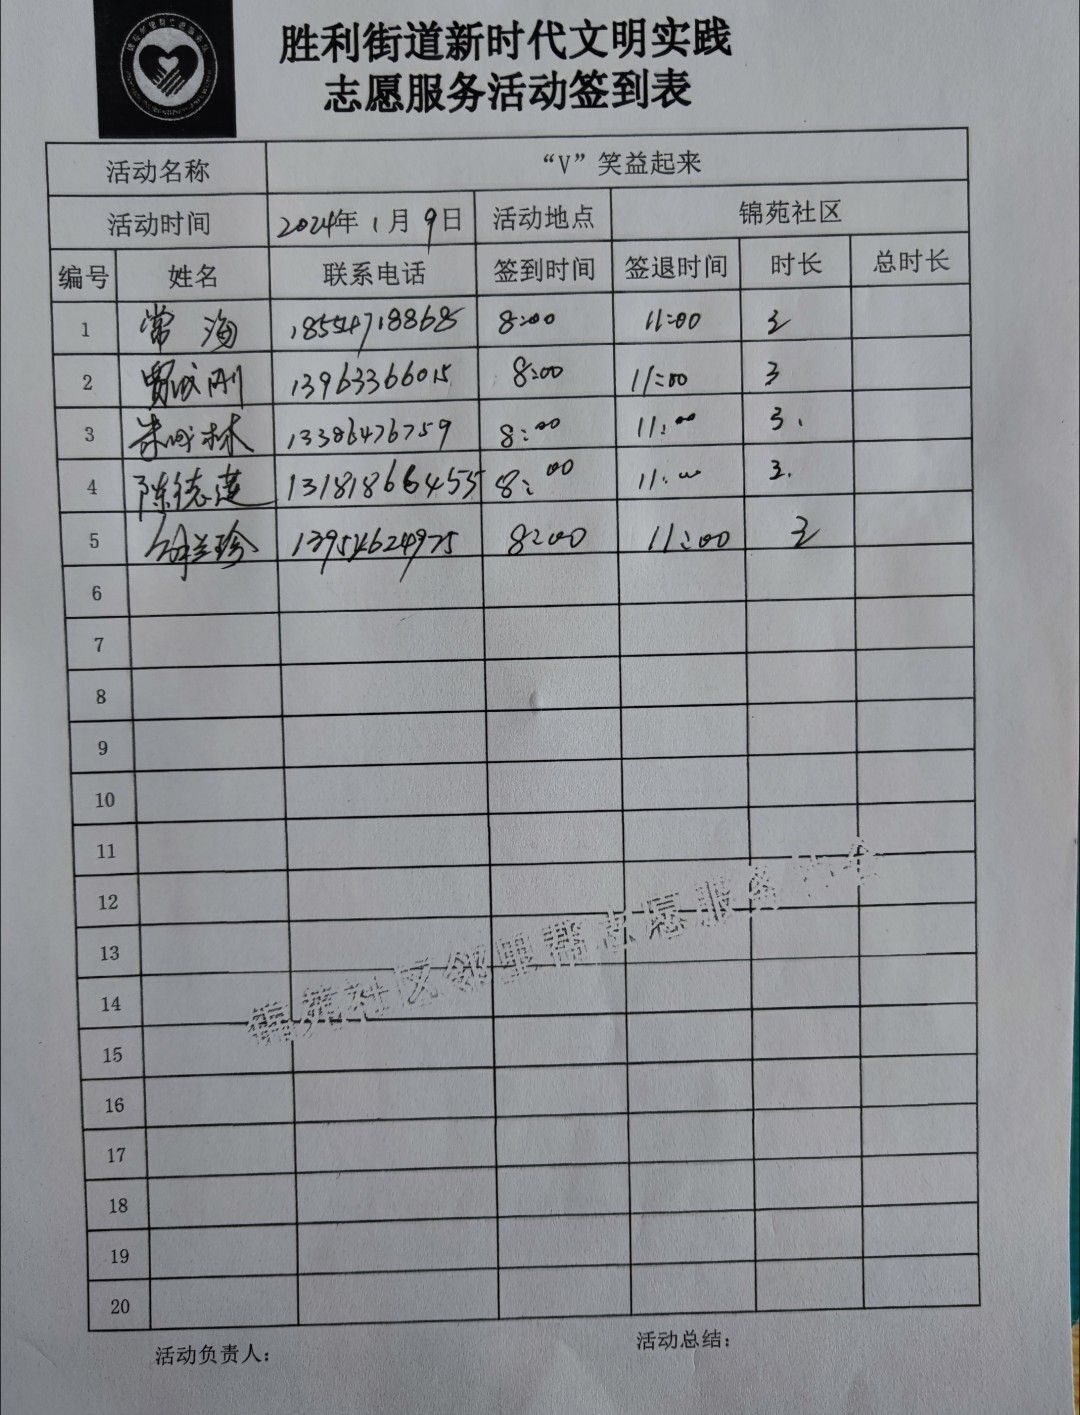 胜利街道新时代文明实践
志愿服务活动签到表
活动名称 “V”笑益起来
活动时间 2024年 1月 9日 活动地点 锦苑社区
编号 姓名 联系电话 签到时间 签退时间 时长 总时长
1 常海 185547188685 8:00 11:00 3
2 贾成刚 13963366015 8:00 11:00 3
3 朱成林 13386476759 8:00 11:00 3.
4 陈德莲 131818664555 8:00 11:00 3.
5 兰珍 8:00 11:00 3
6
7
8
9
10
11
12
13
锦苑社区邻里帮志愿服务协会
14
15
16
17
18
19
20
活动负责人: 活动总结: